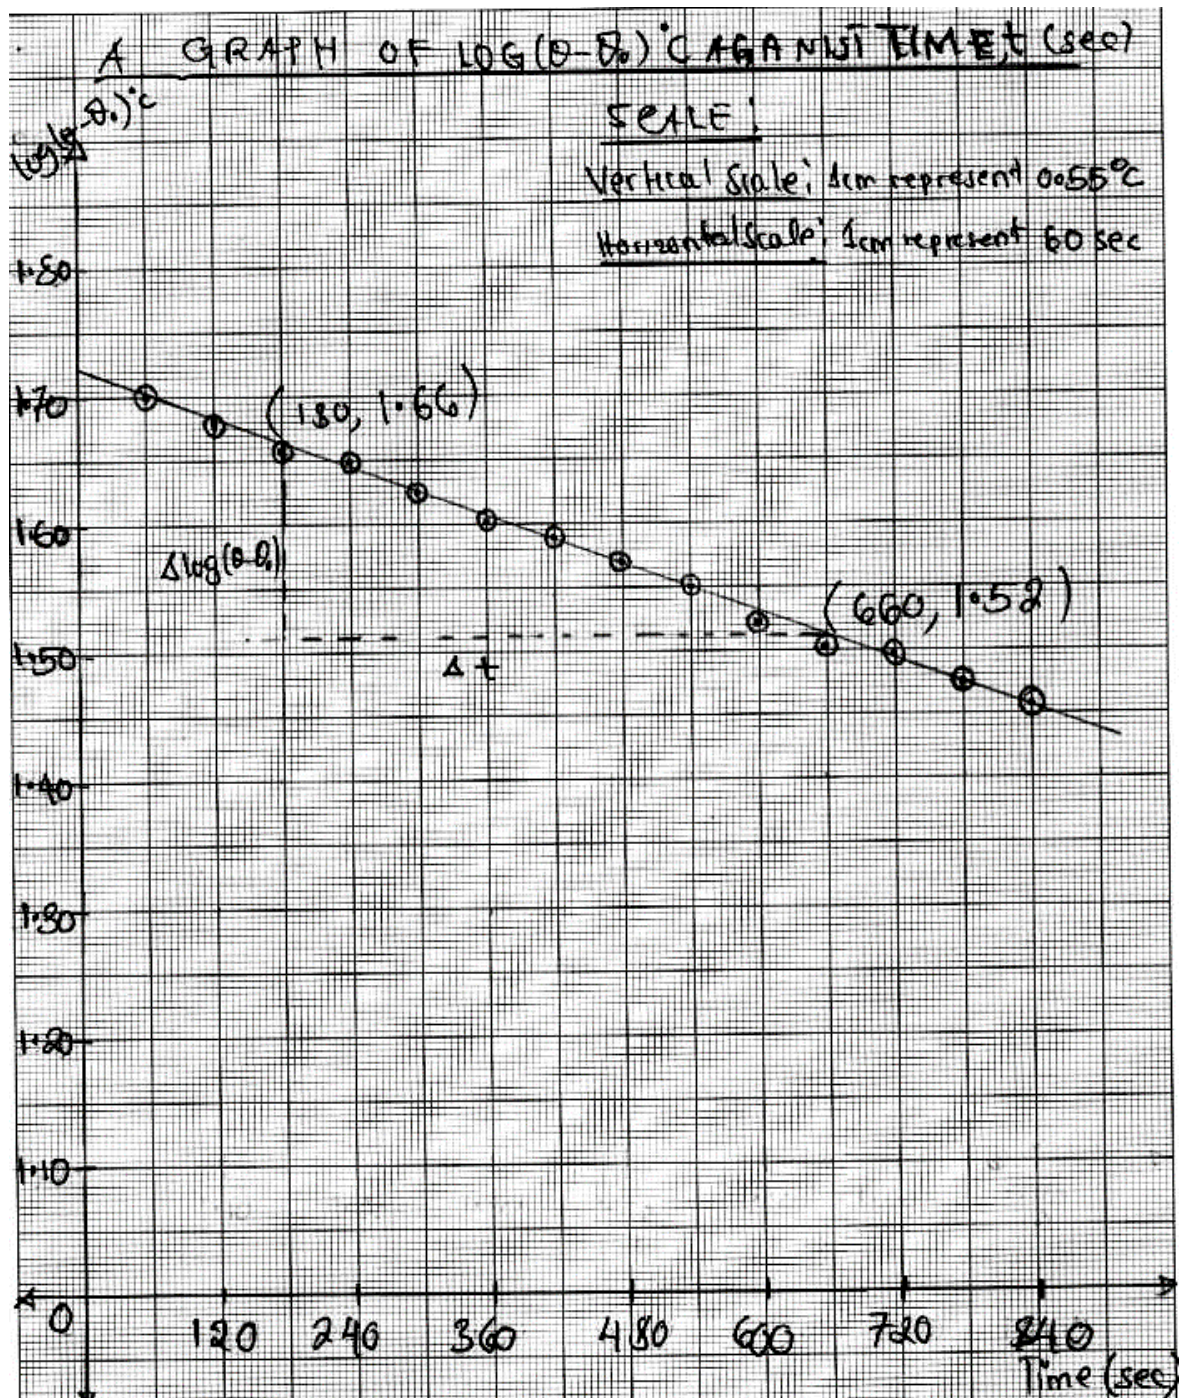 A GRAPH OF LOG(θ-θ₀)°C AGANIST TIME, t (sec)
log(θ-θ₀)°C
SCALE:
Vertical Scale: 1cm represent 0.055°C
Horizontal Scale: 1cm represent 60 sec
1.80
1.70
(180, 1.66)
1.60
Δlog(θ-θ₀)
(660, 1.52)
1.50
Δt
1.40
1.30
1.20
1.10
0 120 240 360 480 600 720 840
Time (sec)